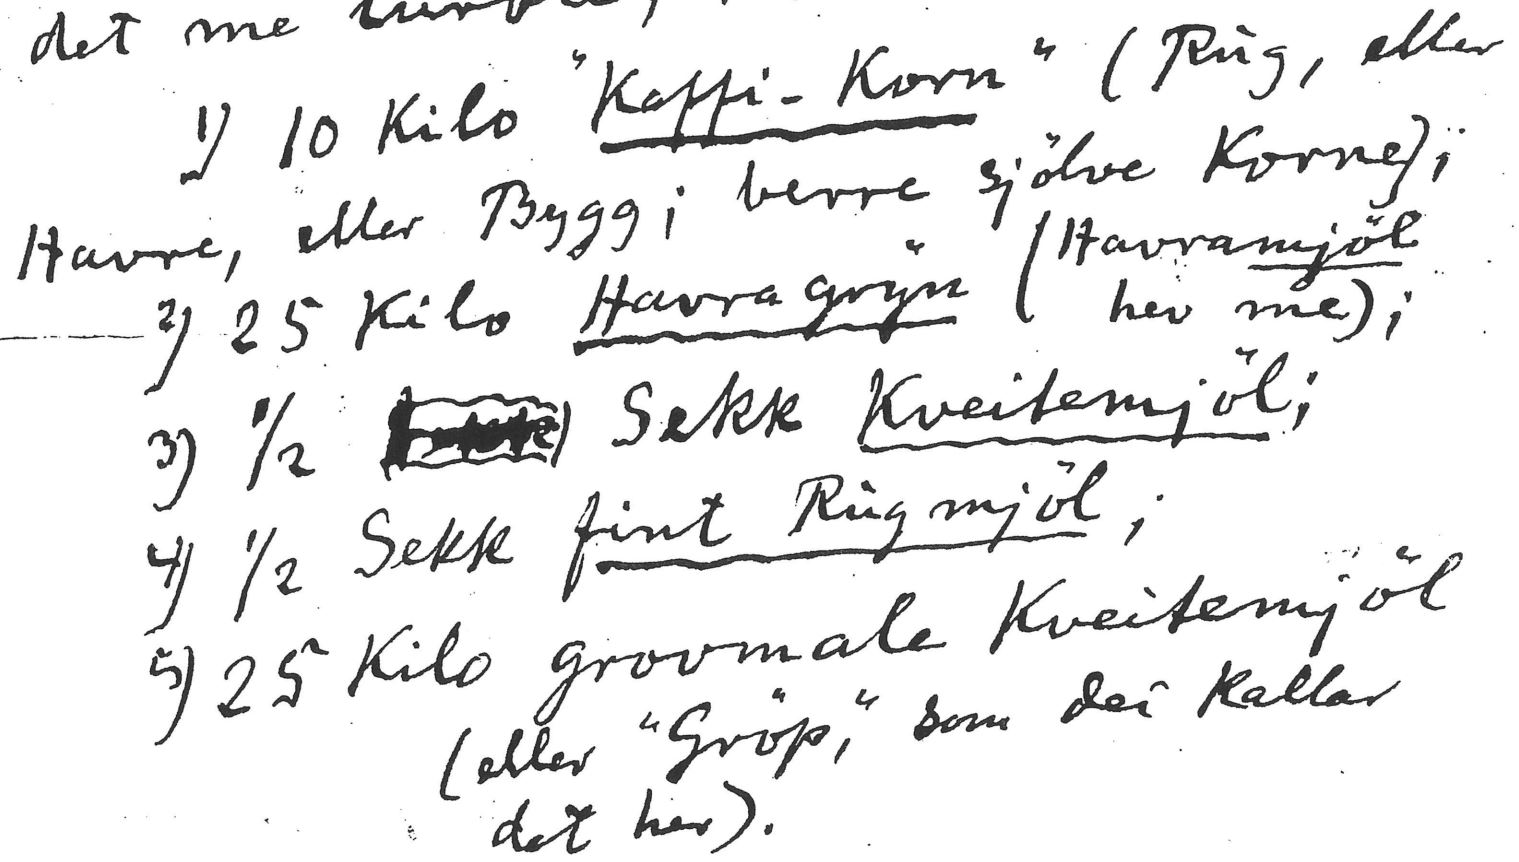 det me
1) 10 Kilo "Kaffi-Korn" (Rug, eller
Havre, eller Bygg; berre sjölve Korne);
2) 25 Kilo Havragryn (Havramjöl
hev me);
3) 1/2 Sekk Kveitemjöl;
4) 1/2 Sekk fint Rugmjöl;
5) 25 Kilo grovmale Kveitemjöl
(eller "Gröp," som dei kallar
det her).